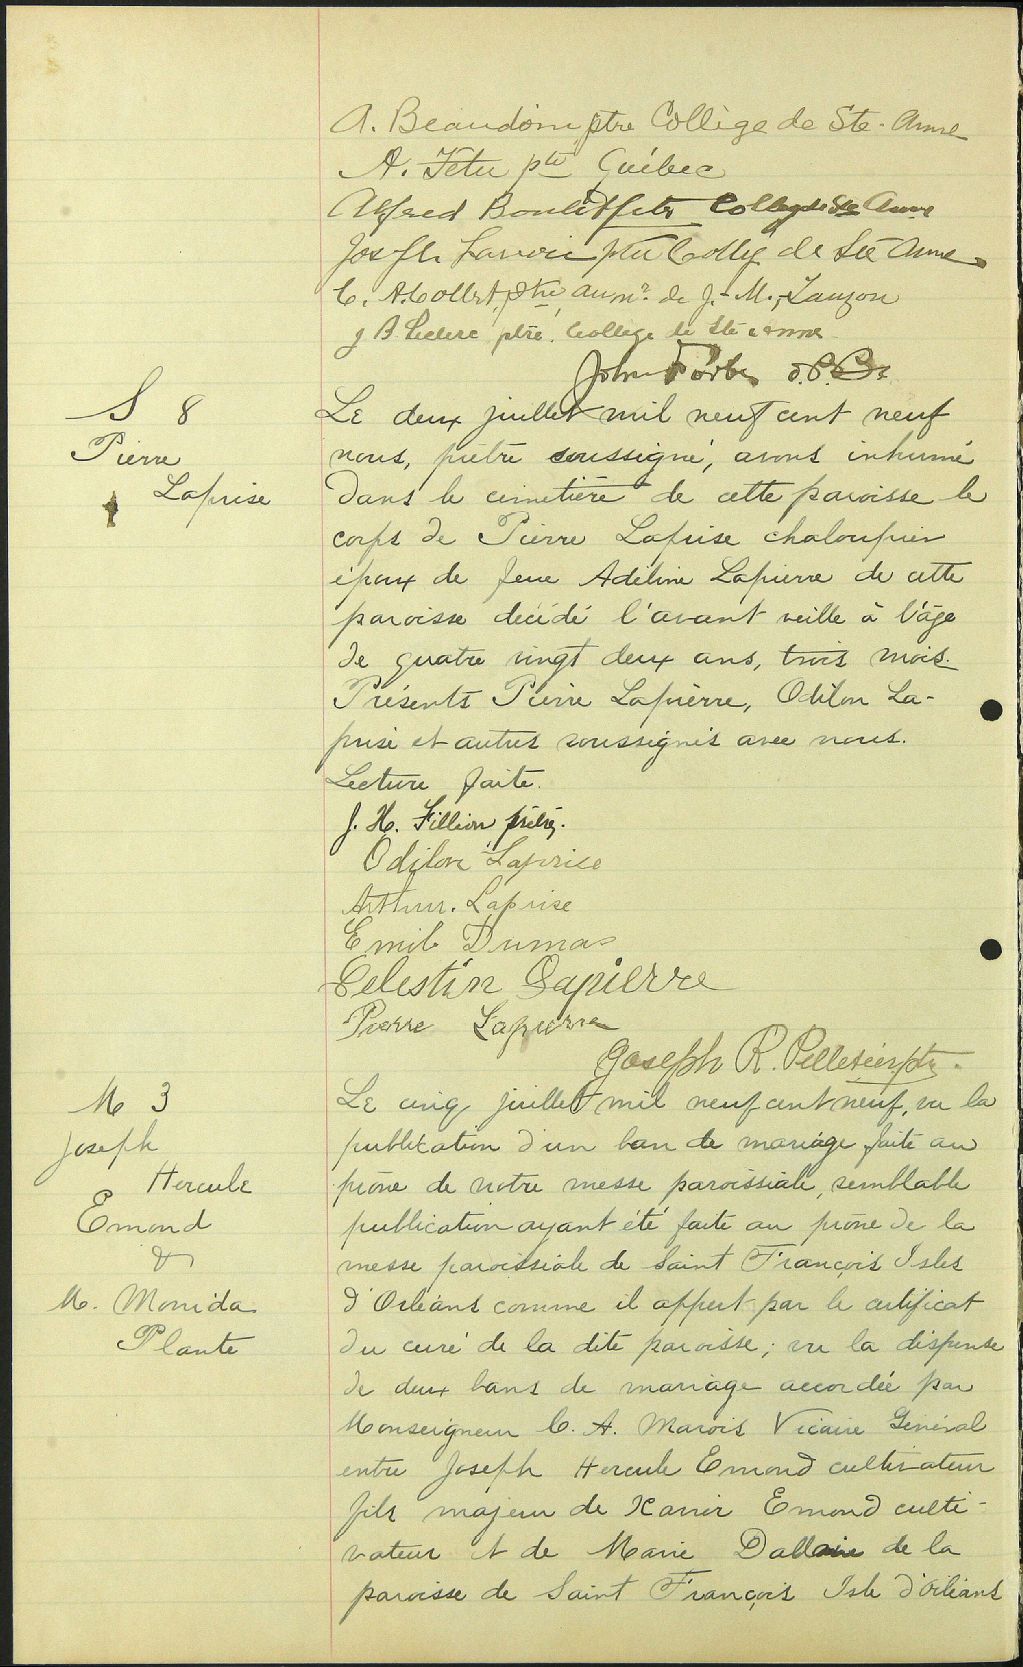 A. Beaudoin ptre Collège de Ste-Anne
A. Fetu ptre Québec
Alfred Boulet ptre Collège de Ste Anne
Joseph Lavoie ptre Collège de Ste Anne
C. A. Collet, ptre aumr. de J.-M., Lauzon
J B. Leclerc ptre. Collège de Ste Anne
John Forbes
S 8
Pierre
Laprise
Le deux juillet mil neuf cent neuf
nous, prêtre soussigné, avons inhumé
dans le cimetière de cette paroisse le
corps de Pierre Laprise chaloupier
époux de feue Adéline Lapierre de cette
paroisse décédé l'avant veille à l'âge
de quatre vingt deux ans, trois mois.
Présents Pierre Lapierre, Odilon La-
prise et autres soussignés avec nous.
Lecture faite.
J. H. Fillion prêtre.
Odilon Laprise
Arthur. Laprise
Emile Dumas
Celestin Lapierre
Pierre Lapierre
Joseph R. Pelletier ptre.
M 3
Joseph
Hercule
Emond
&
M. Monida
Plante
Le cinq juillet mil neuf cent neuf, vu la
publication d'un ban de mariage faite au
prône de notre messe paroissiale, semblable
publication ayant été faite au prône de la
messe paroissiale de Saint François Isles
d'Orléans comme il appert par le certificat
du curé de la dite paroisse; vu la dispense
de deux bans de mariage accordée par
Monseigneur C. A. Marois Vicaire Général
entre Joseph Hercule Emond cultivateur
fils majeur de Xavier Emond culti-
vateur et de Marie Dallaire de la
paroisse de Saint François Isle d'Orléans